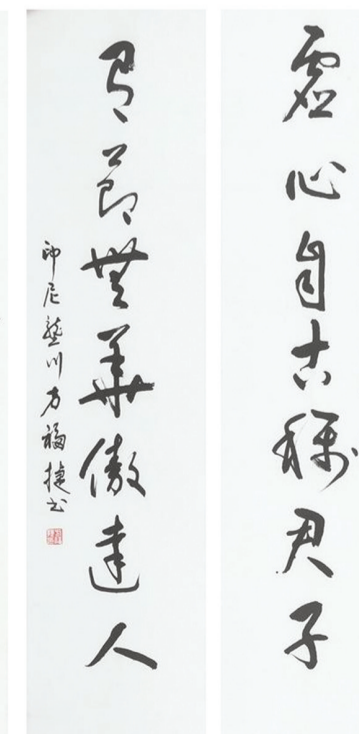 虛心自古稱君子
有節無華傲達人
印尼川方福捷書